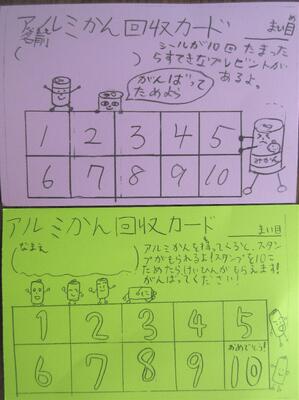 アルミかん回収カード
まい目
名前
(　　　)
シールが10回たまった
らすてきなプレゼントが
あるよ。
がんばって
ためよう
1 2 3 4 5
6 7 8 9 10
みかん
アルミかん回収カード
まい目
(なまえ　　　)
アルミかんを持ってくると、スタン
プがもらえるよ!スタンプを10こ
ためたらけいひんがもらえます!
がんばってください!
1 2 3 4 5
おめでとう!
6 7 8 9 10